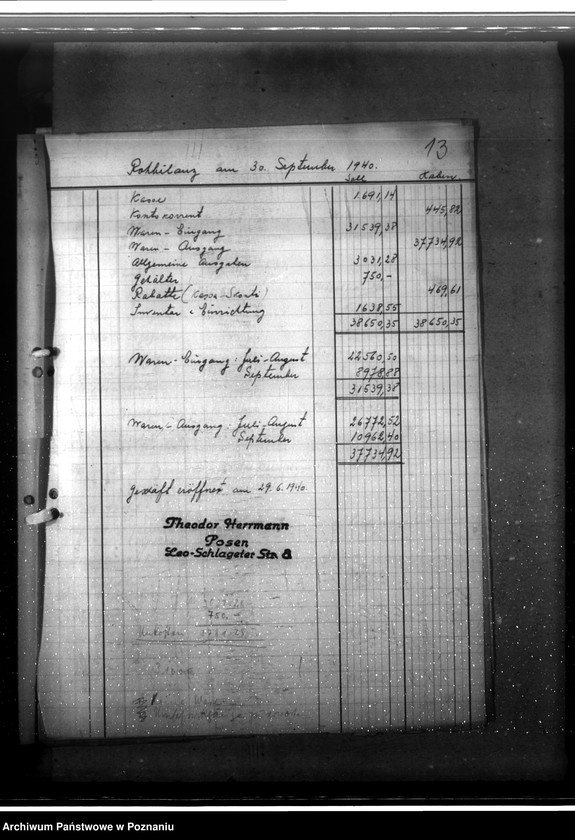 13
Rohbilanz am 30. September 1940.
Soll Haben
Kasse 1.691,14
Kontokorrent 445,82
Waren-Eingang 31539,38
Waren-Ausgang 37734,92
Allgemeine Ausgaben 3031,28
Gehälter 750,-
Rabatte (Kassa-Skonti) 469,61
Inventar u Einrichtung 1638,55
38650,35 38650,35
Waren-Eingang: Juli-August 22560,50
September 8978,88
31539,38
Waren-Ausgang: Juli-August 26772,52
September 10962,40
37734,92
Geschäft eröffnet am 29.6.1940.
Theodor Herrmann
Posen
Leo-Schlageter Str. 8
750.-
Unkosten
Archiwum Państwowe w Poznaniu